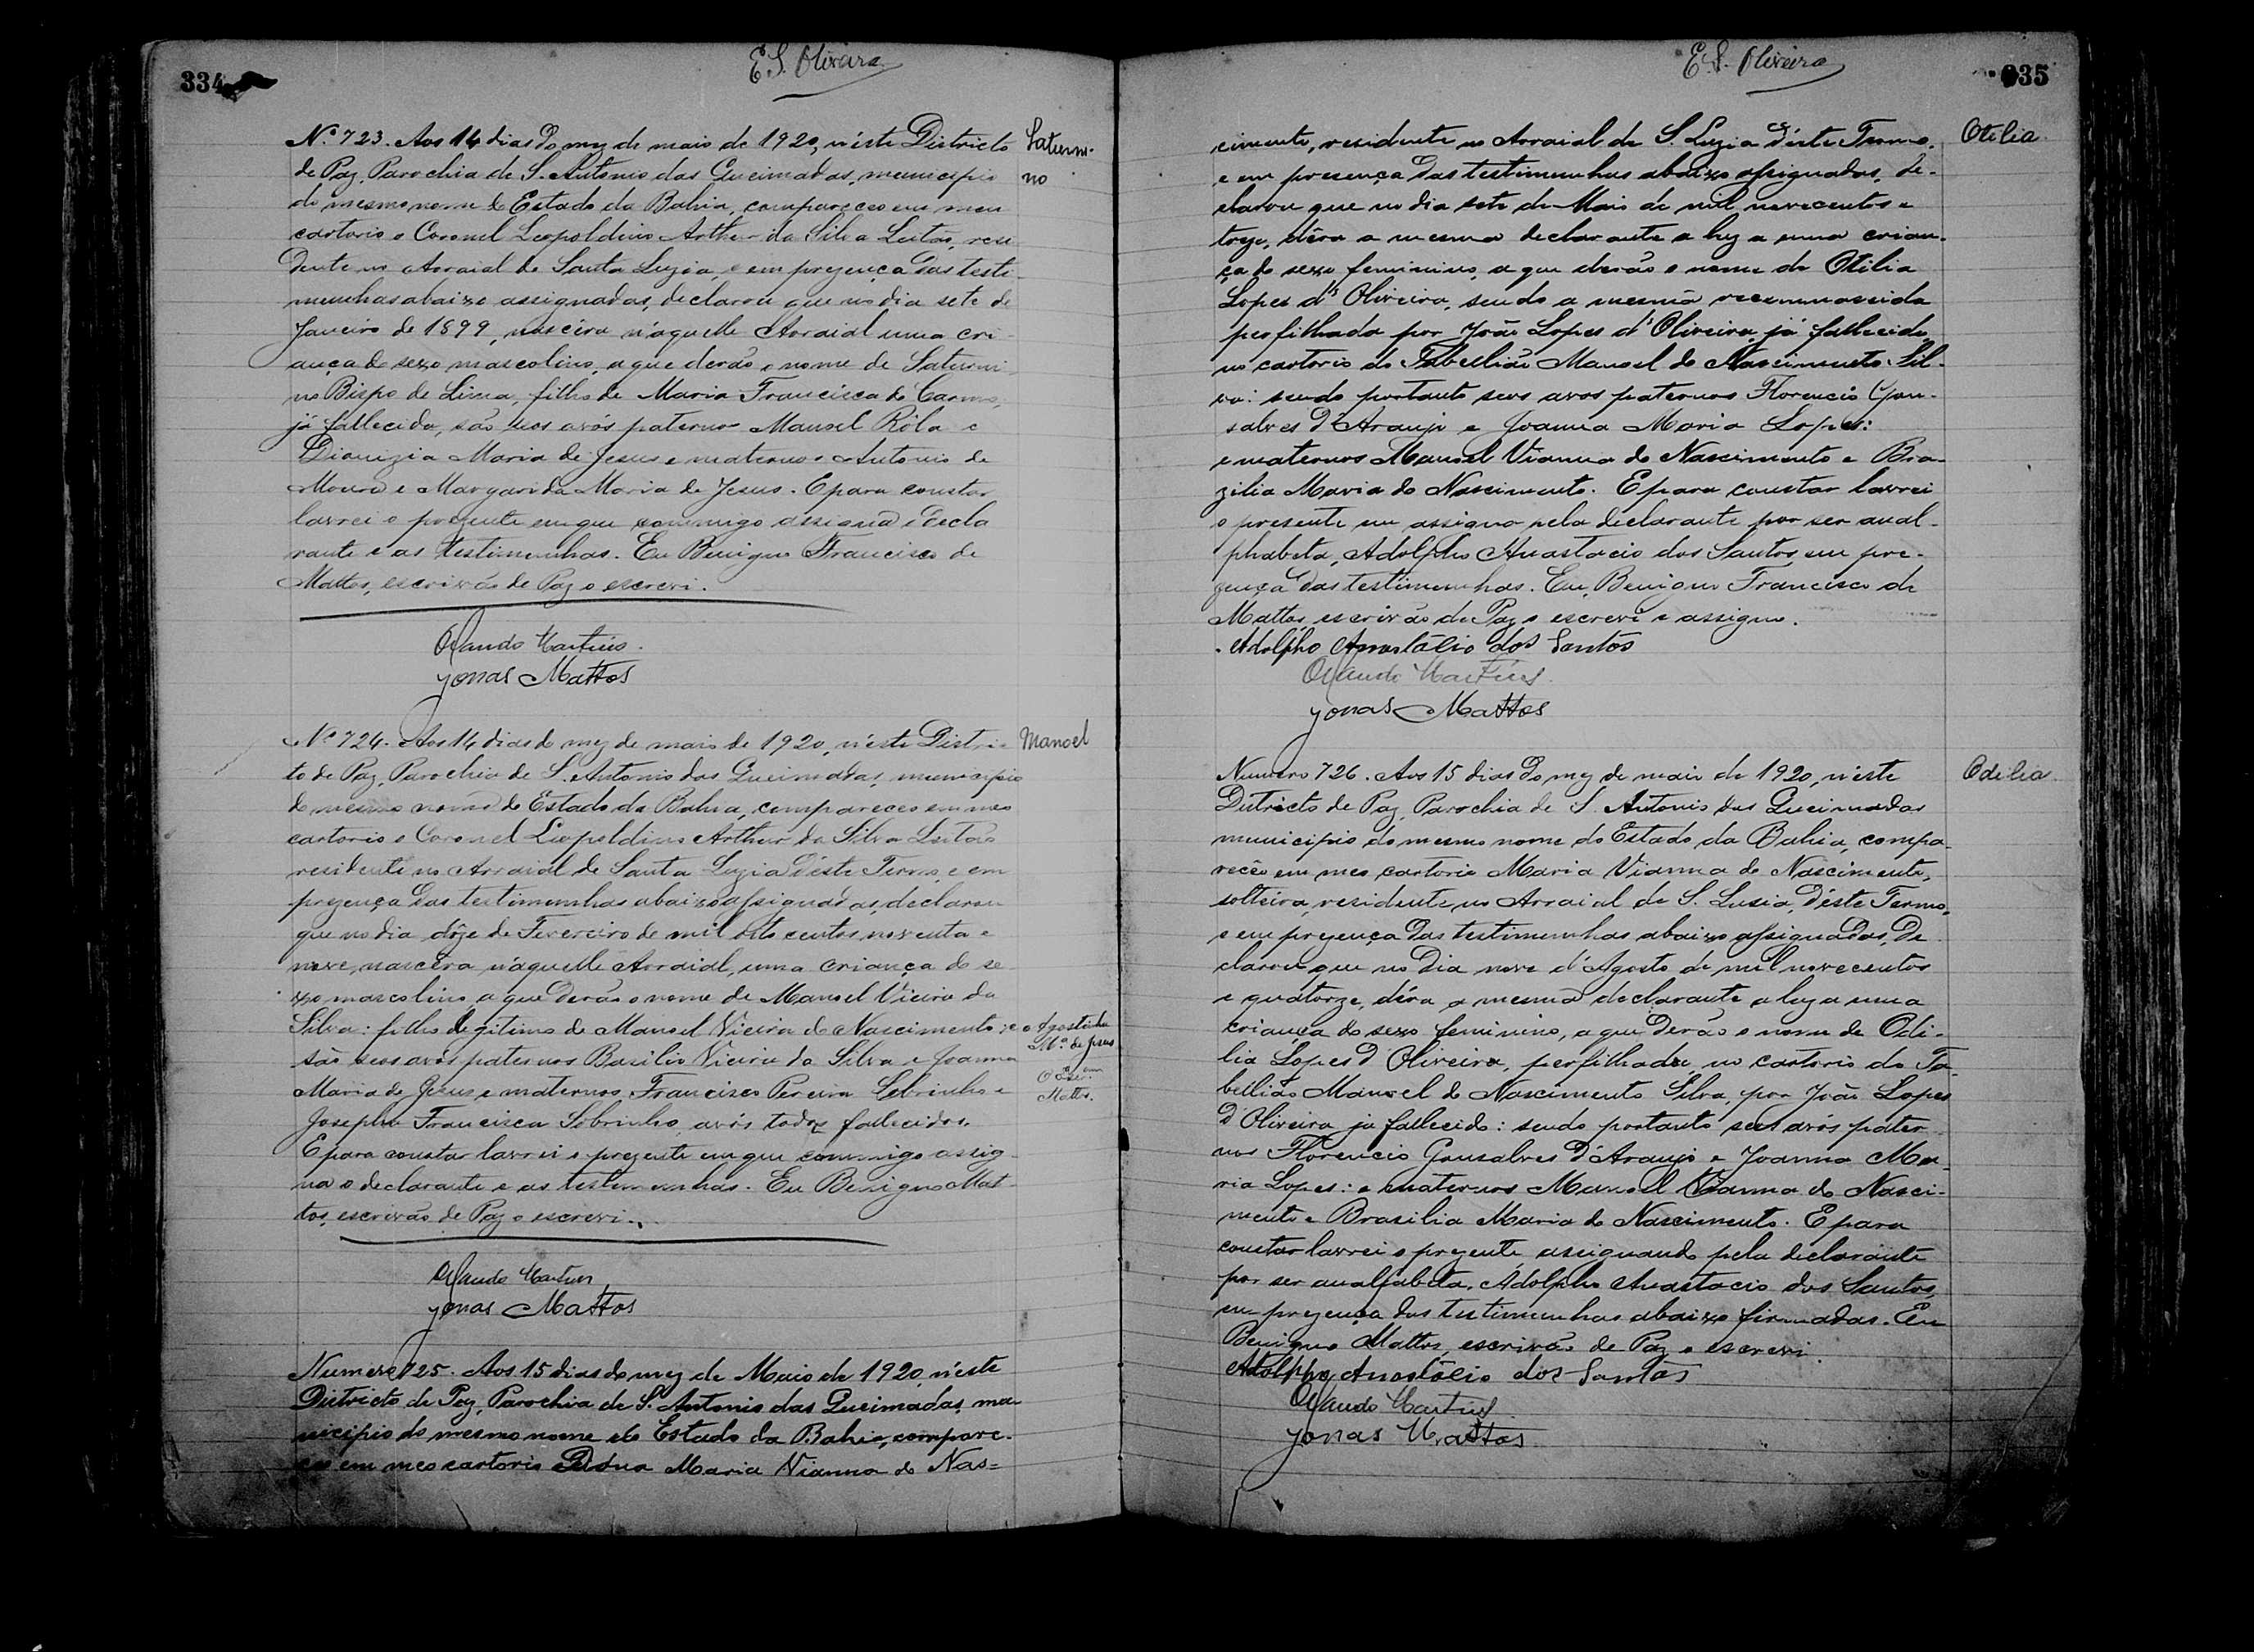 334
E. S. Oliveira
Nº 723. Aos 14 dias do mez de maio de 1920, n'éste Districto
de Paz, Parochia de S. Antonio das Queimadas, municipio
do mesmo nome do Estado da Bahia, compareceo em meu
cartorio o Coronel Leopoldino Arthur da Silva Leitão, resi
dente no Arraial de Santa Luzia, e em prezença das teste
munhas abaixo assignadas, declarou que no dia sete de
Janeiro de 1899, nascêra n'aquelle Arraial uma cri
ança do sexo mascolino, a que derão o nome de Saturni
no Bispo de Lima, filho de Maria Francisca do Carmo,
já fallecida, são seos avós paternos Manoel Rola e
Dionizia Maria de Jesus e maternos Antonio de
Moura e Margarida Maria de Jesus. E para constar
lavrei o prezente em que commigo assigna o decla
rante e as testemunhas. Eu Benigno Francisco de
Mattos, escrivão de Paz o escrevi.
Saturni-
no
Orlando Martins.
Jonas Mattos
Nº 724. Aos 14 dias do mez de maio de 1920, n'éste Distric
to de Paz, Parochia de S. Antonio das Queimadas, municipio
do mesmo nome do Estado da Bahia, compareceo em meo
cartorio o Coronel Leopoldino Arthur da Silva Leitão
residente no Arraial de Santa Luzia d'éste Termo, e em
prezença das testimunhas abaixo assignadas, declarou
que no dia dôze de Fevereiro de mil oito centos noventa e
nove, nascêra n'aquelle Arraial, uma criança do se
xo mascolino, a que derão o nome de Manoel Vieira da
Silva: filho legitimo de Manoel Vieira do Nascimento: e
são seos avós paternos Basilio Vieira da Silva e Joanna
Maria de Jesus e maternos, Francisco Pereira Sobrinho e
Josepha Francisca Sobrinho avós todos fallecidos.
E para constar lavrei o prezente em que commigo assig
na o declarante e as testemunhas. Eu Benigno Mat
tos, escrivão de Paz o escrevi.
Manoel
Agostinha
Mª. de Jesus
Mattos.
Orlando Martins
Jonas Mattos
Numero 725. Aos 15 dias do mez de Maio de 1920, n'éste
Districto de Paz, Parochia de S. Antonio das Queimadas, mu
nicipio do mesmo nome do Estado da Bahia, compare-
ceo em meo cartorio Maria Vianna do Nas=
335
E. S. Oliveira
cimento, residente no Arraial de S. Luzia d'éste Termo,
e em presença das testimunhas abaixo assignadas, de-
clarou que no dia sete de Maio de mil novecentos e
treze, déra a mesma declarante a luz a uma crian-
ça do sexo feminino, a que derão o nome de Otilia
Lopes d' Oliveira, sendo a mesma recemnascida
perfilhada por João Lopes d'Oliveira, já fallecido,
no cartorio do Tabellião Manoel do Nascimento Sil-
va: sendo portanto seos avos paternos Florencio Gon-
salves D'Araujo e Joanna Maria Lopes:
e maternos Manoel Vianna do Nascimento e Bra-
zilia Maria do Nascimento. E para constar lavrei
o presente em assigna pela declarante por ser anal-
phabeta, Adolpho Anastacio dos Santos, em pre-
zença das testimunhas. Eu, Benigno Francisco de
Mattos, escrivão de Paz o escrevi e assigno.
Otilia
Adolpho Anastácio dos Santos
Orlando Martins.
Jonas Mattos
Numero 726. Aos 15 dias do mez de maio de 1920, n'éste
Districto de Paz, Parochia de S. Antonio das Queimadas
municipio do mesmo nome do Estado da Bahia, compa-
recêo em meo cartorio Maria Vianna do Nascimento,
solteira, residente no Arraial de S. Lusia, D'éste Termo,
e em prezença das testimunhas abaixo assignadas, De
clarou que no Dia nove d'Agosto de mil novecentos
e quatorze, déra a mesma declarante a luz a uma
criança do sexo feminino, a que derão o nome de Odi-
lia Lopes D Oliveira, perfilhada, no cartorio do Ta-
bellião Manoel do Nascimento Silva, por João Lopes
D'Oliveira já fallecido: sendo portanto seos avós pater
nos Florencio Gonsalves D'Araujo e Joanna Ma-
ria Lopes: e maternos Manoel Vianna do Nasci-
mento e Brasilia Maria do Nascimento. E para
constar lavrei o prezente assignando pela declarante
por ser analfabeta, Adolpho Anastacio dos Santos,
em prezença das testimunhas abaixo firmadas. Eu
Benigno Mattos, escrivão de Paz o escrevi.
Odilia
Adolpho Anastácio dos Santos
Orlando Martins
Jonas Mattos